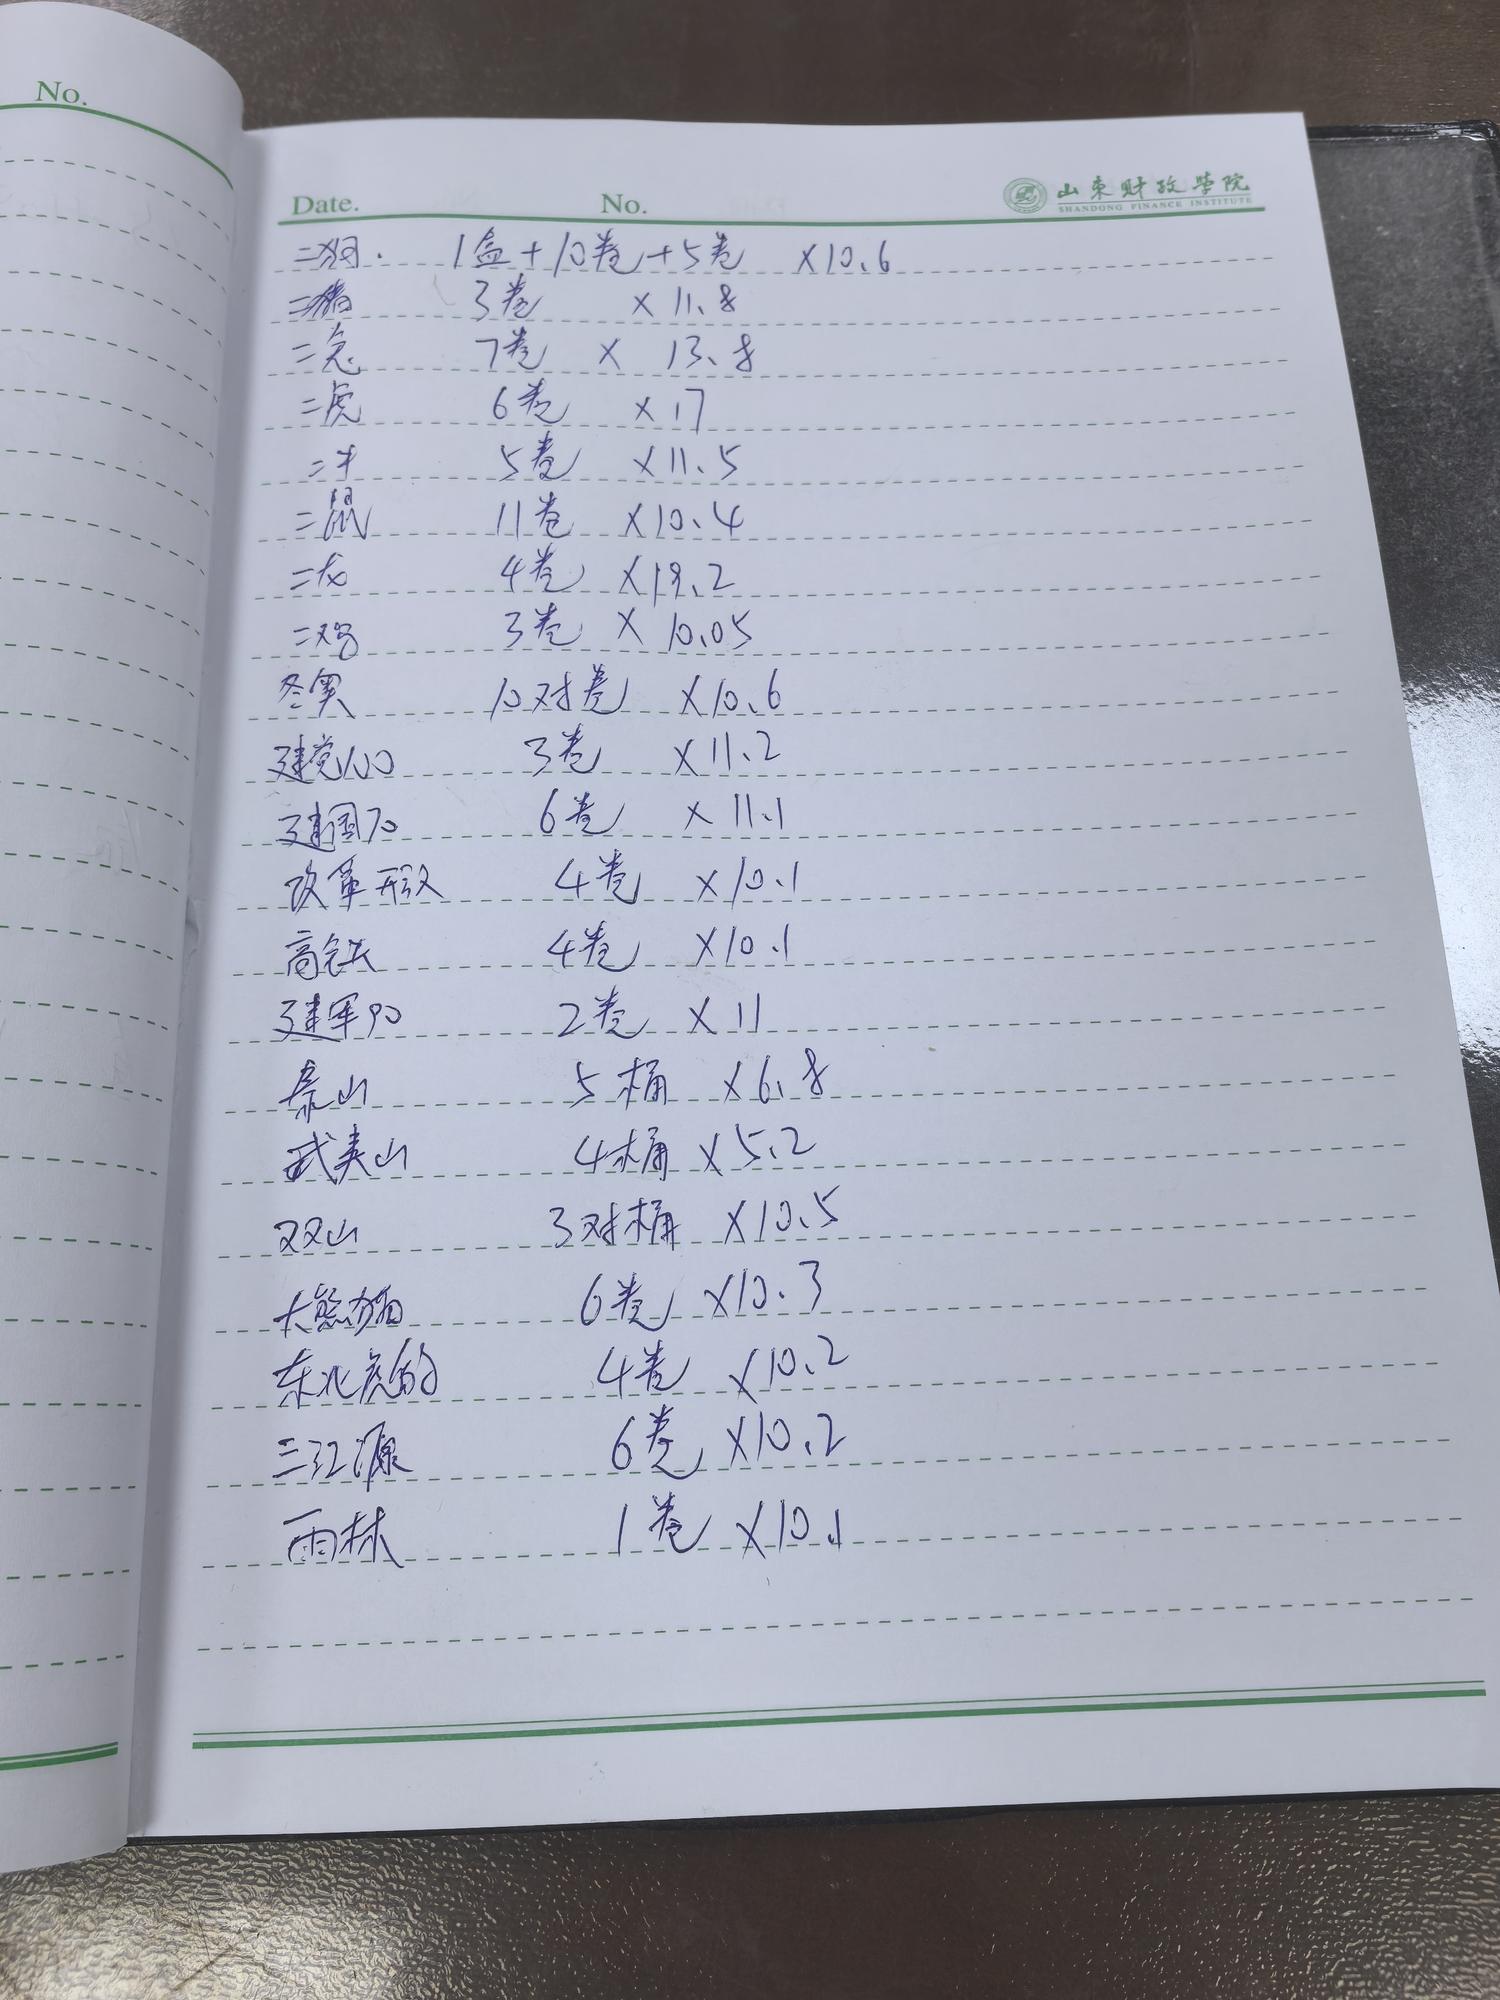 No.
Date. No. 山东财政学院
SHANDONG FINANCE INSTITUTE
二狗. 1盒+10卷+5卷 ×10.6
二猪 3卷 × 11.8
二兔 7卷 × 13.8
二虎 6卷 ×17
二牛 5卷 ×11.5
二鼠 11卷 ×10.4
二龙 4卷 ×19.2
二鸡 3卷 × 10.05
冬奥 10对卷 ×10.6
建党100 3卷 ×11.2
建国70 6卷 × 11.1
改革开放 4卷 ×10.1
高铁 4卷 ×10.1
建军90 2卷 ×11
泰山 5桶 ×6.8
武夷山 4桶 ×5.2
双山 3对桶 ×10.5
大熊猫 6卷 ×10.3
东北虎豹 4卷 ×10.2
三江源 6卷 ×10.2
雨林 1卷 ×10.1